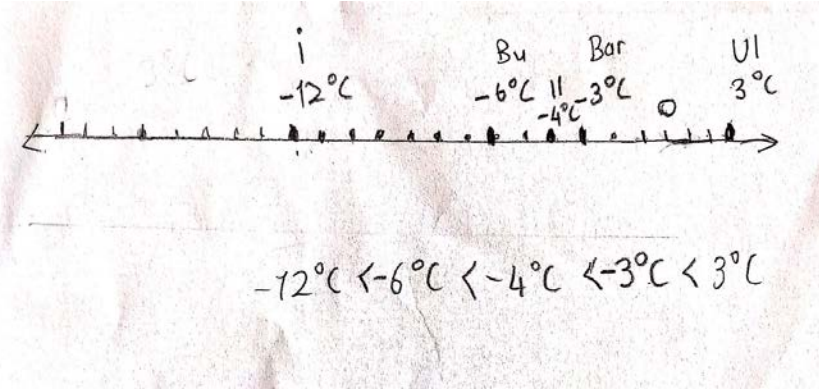 i Bu Bar Ul
-12°C -6°C 11 -3°C 3°C
-4°C 0
-12°C <-6°C <-4°C <-3°C < 3°C